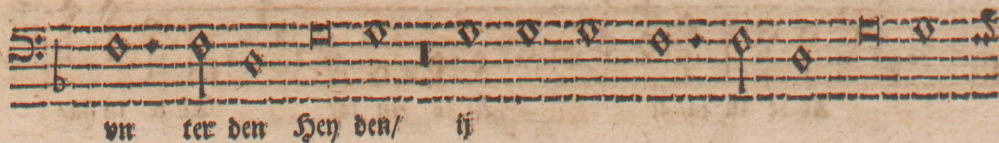 vn ter den Hey den/ ij